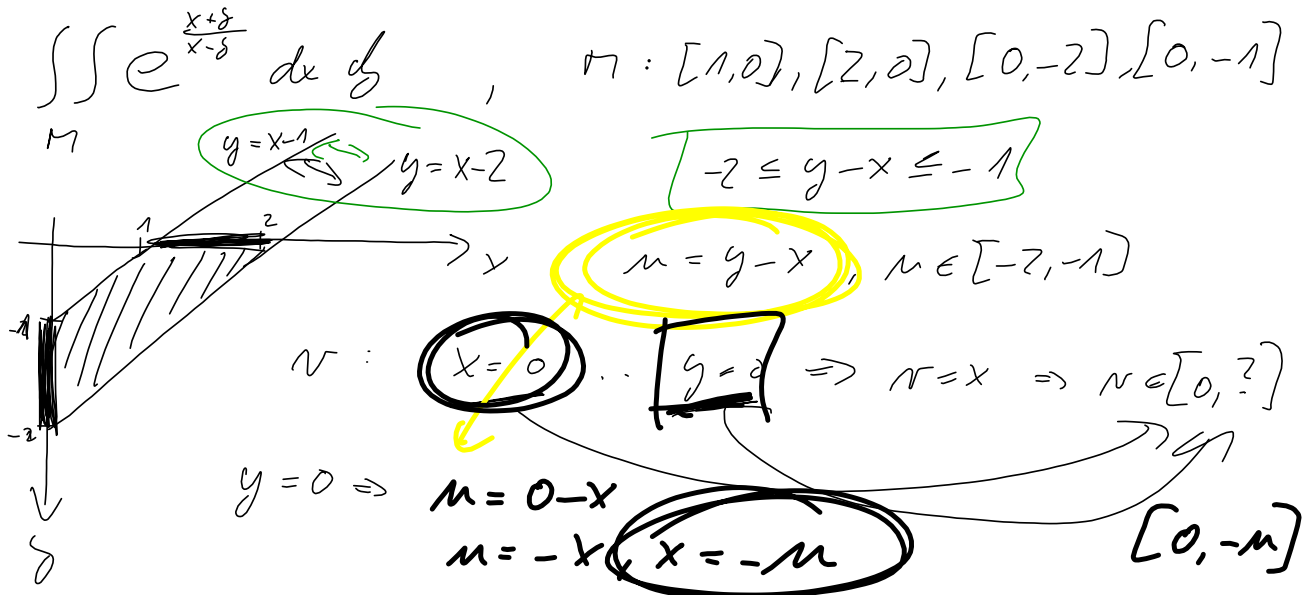 ∬ e^{\frac{x+y}{x-y}} dx dy , M : [1,0], [2,0], [0,-2], [0,-1]
M
y = x-1
y = x-2
-2 ≤ y-x ≤ -1
1 2
x
u = y-x, u ∈ [-2,-1]
-1
v : x = 0 .. y = 0 ⇒ v = x ⇒ v ∈ [0,?]
-2
y = 0 ⇒ u = 0-x
u = -x, x = -u [0,-u]
y